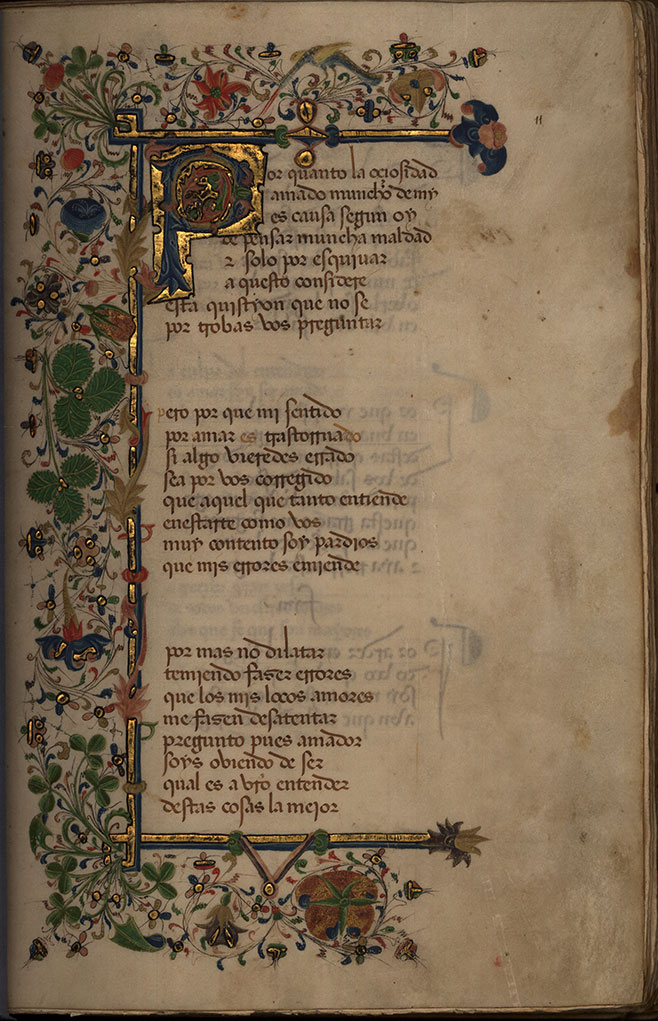 11
Por quanto la oçiosidad
amado muncho de my
es causa segun oy
de pensar muncha maldad
2 solo por esquivar
a questo considere
esta quistyon que no se
por trobas vos preguntar
pero por que mi sentido
por amar es trastornado
si algo vieredes errado
sea por vos corregido
que aquel que tanto entiende
enestarte como vos
muy contento soy pardios
que mis errores emiende
por mas no dilatar
temiendo fazer errores
que los mis locos amores
me fazen desatentar
pregunto pues amador
soys oviendo de ser
qual es a vro entender
destas cosas la mejor